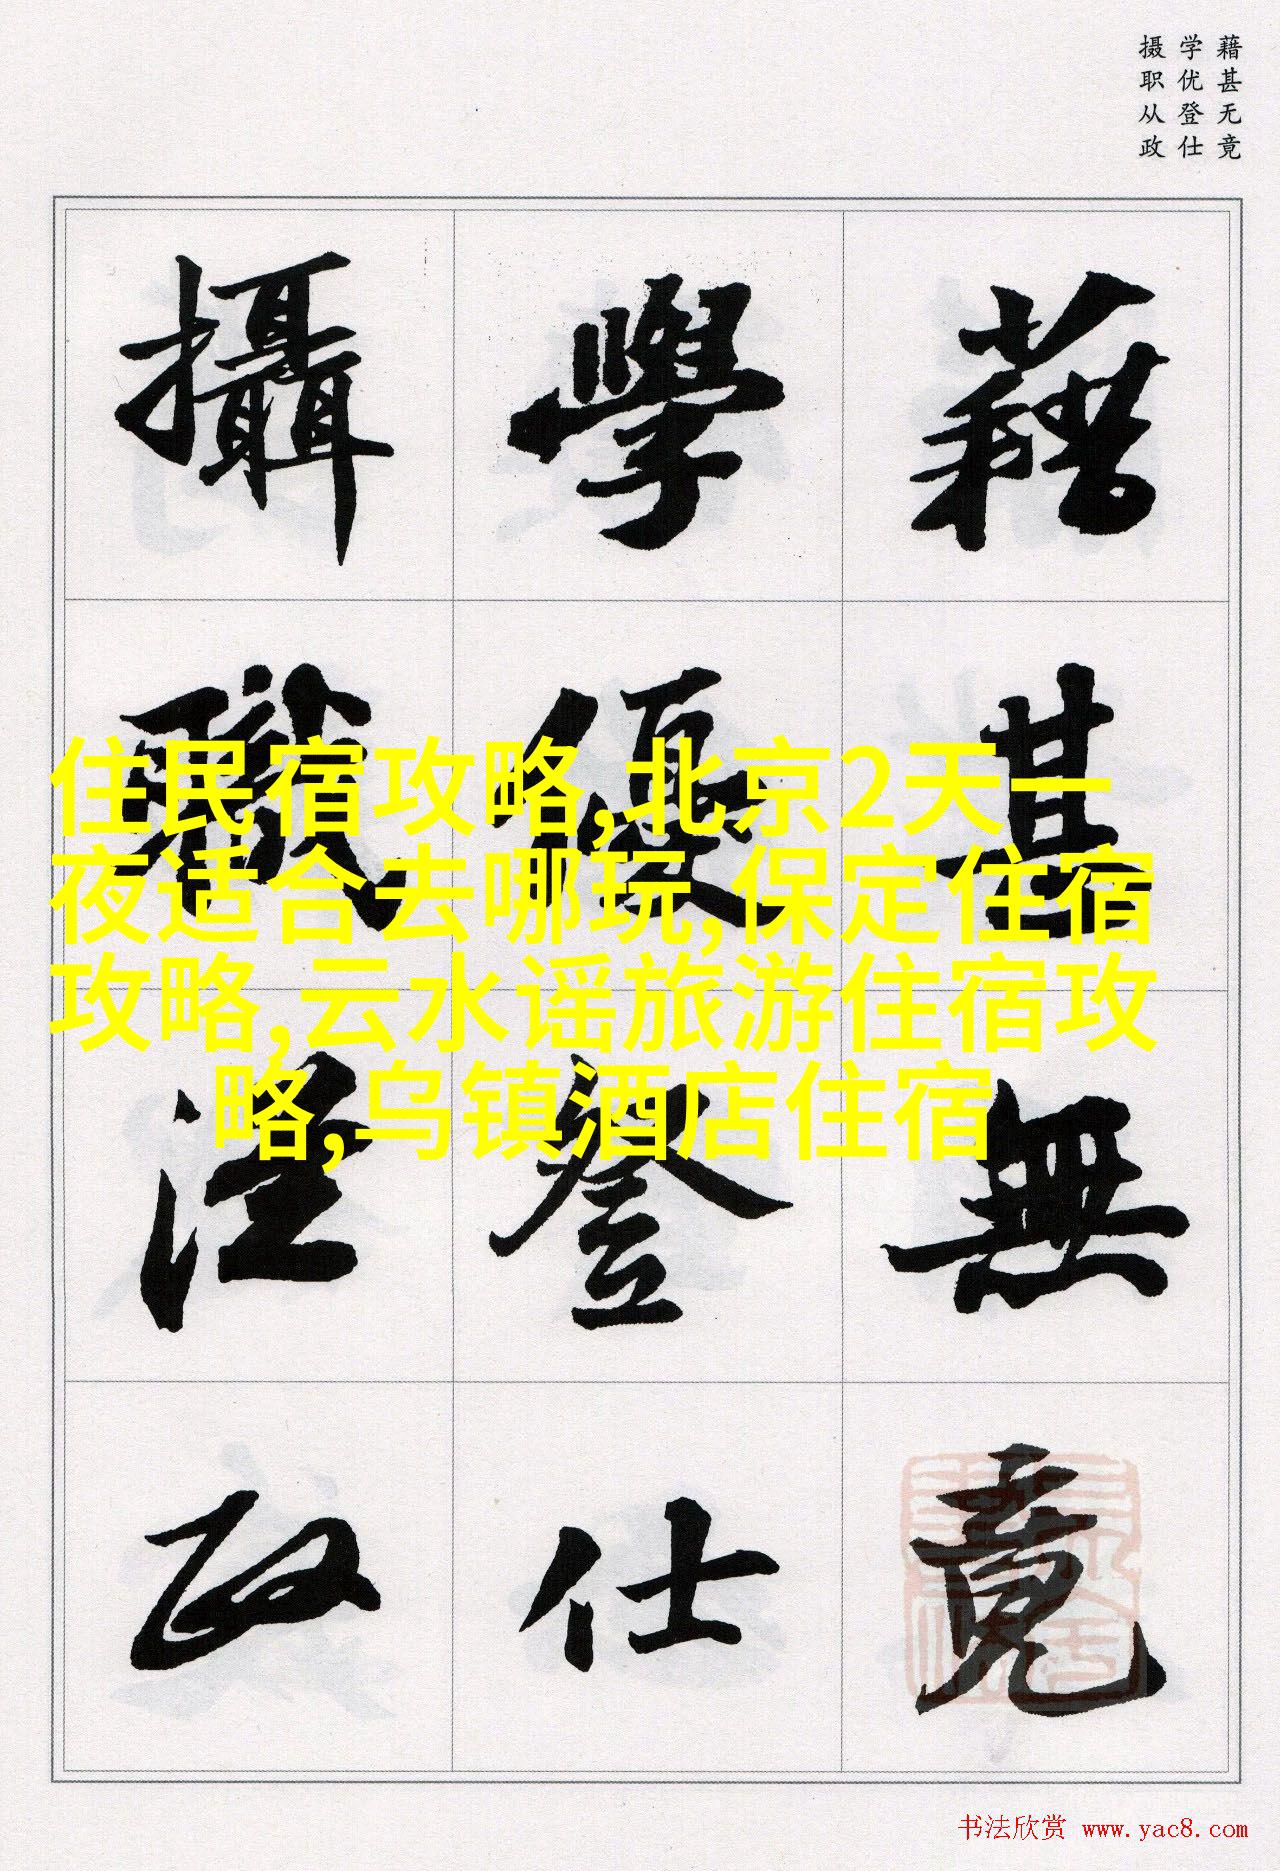 藉甚无竟
学优登仕
摄职从政
藉甚無竟
學優登仕
攝職從政
住民宿攻略,北京2天一
夜适合去哪玩,保定住宿
攻略,云水谣旅游住宿攻
略,乌镇酒店住宿
书法欣赏 www.yac8.com